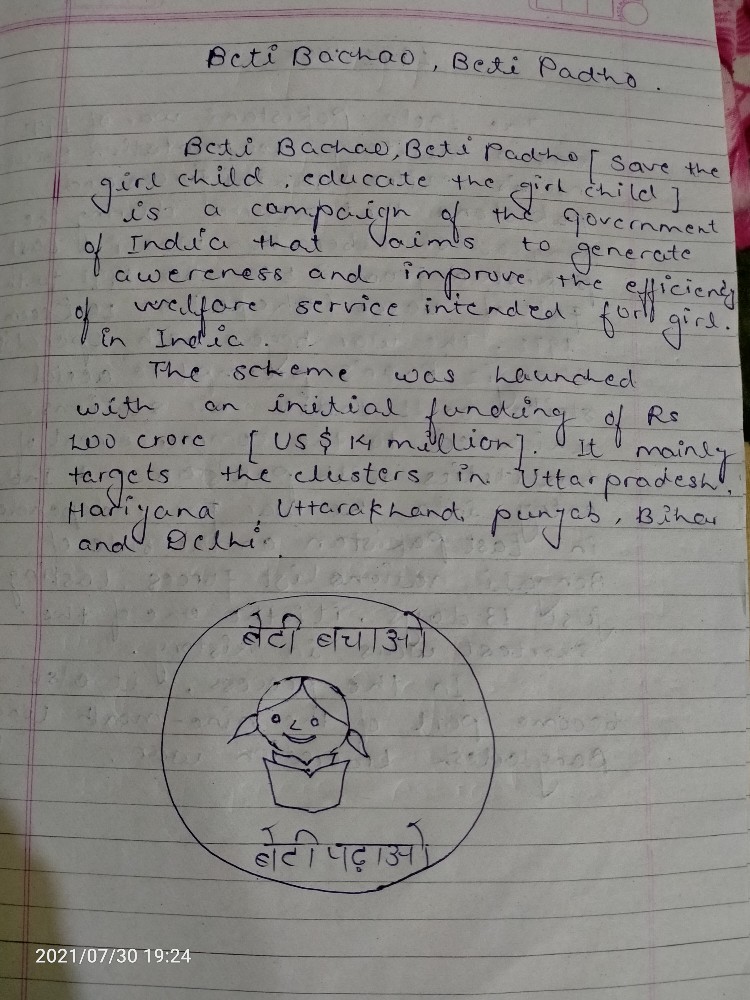 Beti Bachao, Beti Padho.
Beti Bachao, Beti Padho [Save the
girl child, educate the girl child]
is a campaign of the government
of India that aims to generate
awereness and improve the efficiency
of welfare service intended for girl.
in India.
The scheme was launched
with an initial funding of Rs
100 crore [US $ 14 million]. It mainly
targets the clusters in Uttarpradesh,
Hariyana, Uttarakhand, punjab, Bihar
and Delhi.
बेटी बचाओ
बेटी पढ़ाओ
2021/07/30 19:24